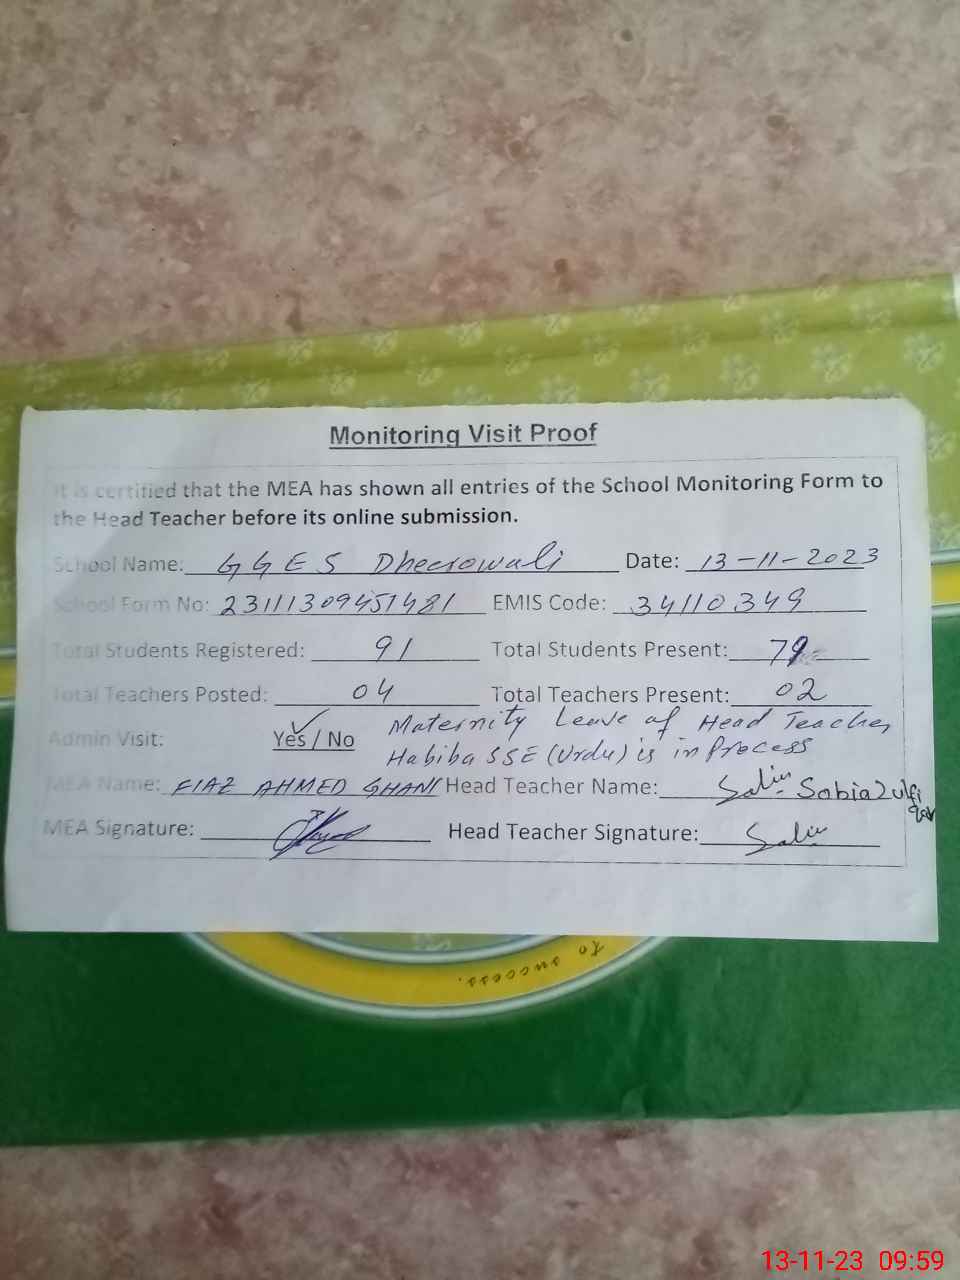 Monitoring Visit Proof
It is certified that the MEA has shown all entries of the School Monitoring Form to
the Head Teacher before its online submission.
School Name: GGES Dheerowali Date: 13-11-2023
School Form No: 23111309451481 EMIS Code: 34110349
Total Students Registered: 91 Total Students Present: 79
Total Teachers Posted: 04 Total Teachers Present: 02
Maternity Leave of Head Teacher
Admin Visit: Yes / No Habiba SSE (Urdu) is in Process
MEA Name: FIAZ AHMED GHANI Head Teacher Name: Sobia Zulfiqar
MEA Signature: Head Teacher Signature:
to success.
13-11-23 09:59